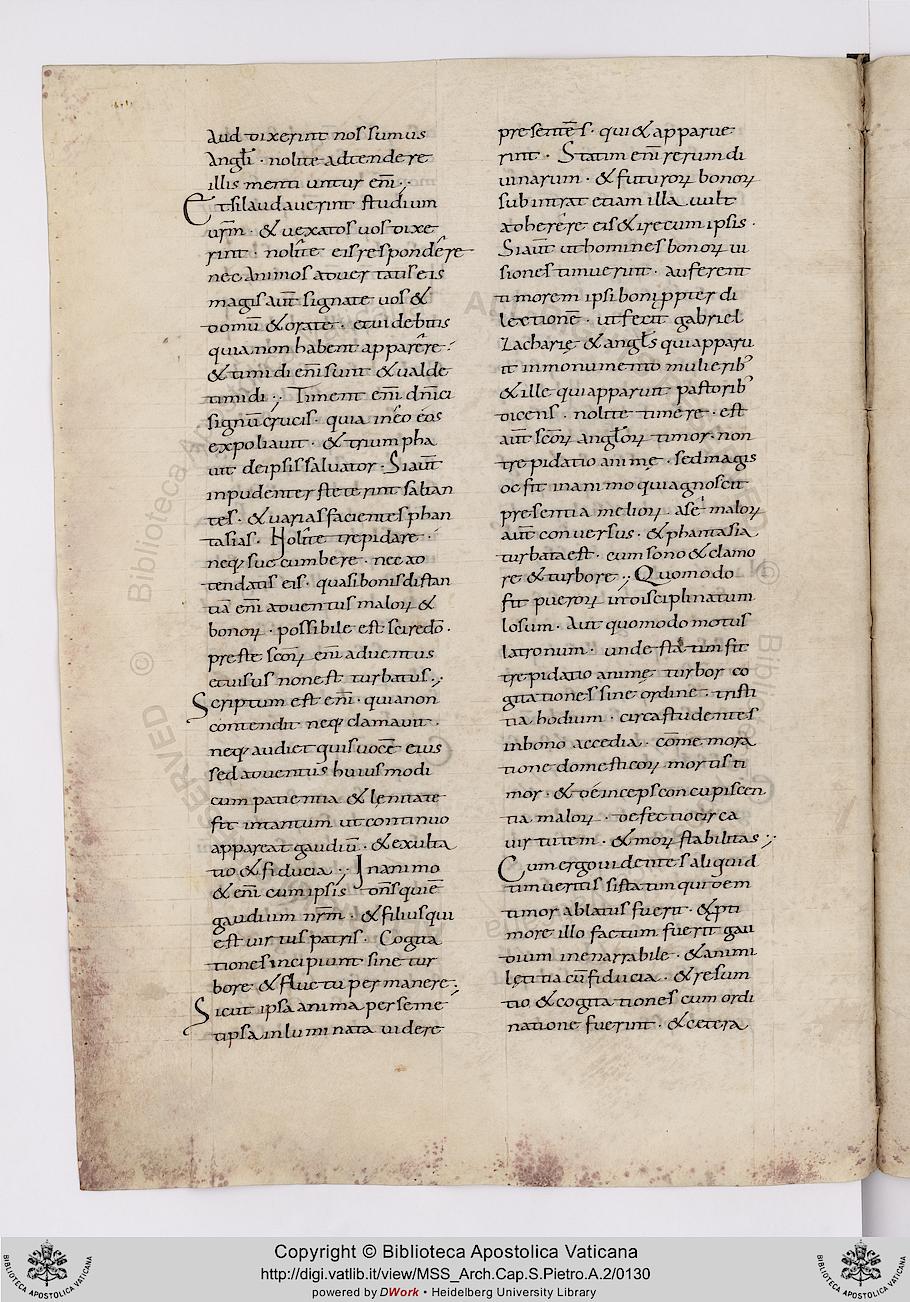 Aut dixerint nos sumus
Angłi · nolite adtendere
illis mentiuntur eni͞ ·,·
Et si laudaverint studium
ur͞m · & uexatos uos dixe
rint · nolite eis respondere
nec Animos aduertatis eis
magis aut͞ signate uos &
domū & orate · et uidebitis
quia non habent apparere ·
& timidi eni͞ sunt & ualde
timidi ·,· Timent eni͞ dn͞ici
signū crucis · quia in eo eos
expoliauit · & triumpha
uit de ipsis saluator · Si aut͞
inpudenter steterint saltan
tes · & uarias facientes phan
tasias · Nolite trepidare ·
neq; succumbere · nec ad
tendatis eis · quasi bonis distan
tia͞ eni͞ aduentus maloꝝ &
bonoꝝ · possibile est scire do͞ ·
preste sc͞oꝝ eni͞ aduentus
et uisus non est turbatus ·,·
Scriptum est eni͞ · quia non
contendit neq; clamauit ·
neq; audiet quis uoce͞ eius
sed aduentus huiusmodi
cum patientia & lęnitate
fit intantum ut continuo
appareat gaudiū · & exulta
tio & fiducia ·,· In animo
& eni͞ cum ipsis dn͞s qui e͞
gaudium nr͞m · & filius qui
est uirtus patris · Cogita
tiones incipiunt sine tur
bore & fluctu permanere ·,
Sicut ipsa anima per seme
tipsa inluminata uidere
presentes · qui & apparue
rint · Statim eni͞ rerum di
uinarum · & futuroꝝ bonoꝝ
subintrat etiam illa uult
adherere eis & ire cum ipsis ·
Si aut͞ ut homines bonoꝝ ui
siones timuerint · auferent
timorem ipsi boni ꝓpter di
lectione͞ · ut fecit gabriel
Zacharię & angłs qui apparu
it in monumento mulierib;
& ille qui apparuit pastorib;
dicens · nolite timere · est
aut͞ sc͞oꝝ angłoꝝ timor · non
trepidatio animę · sed magis
de fit in animo qui agnoscit
presentia melioꝝ · a se maloꝝ
aut͞ conuersus · & phantasia
turbata est · cum sono & clamo
re & turbore ·,· Quomodo
fit pueroꝝ indisciplinatum
losum · Aut quomodo motus
latronum · unde statim fit
trepidatio animę turbor co
gitationes sine ordine · tristi
tia hodium · circa studentes
in bono accedia · com͞emora
tione domesticoꝝ mortis ti
mor · & deinceps concupiscen
tia maloꝝ · defectio circa
uirtutem · & moꝝ stabilitas ·,·
Cum ergo uidentes aliquid
timueritis si statim quidem
timor ablatus fuerit · & ꝓ ti
more illo factum fuerit gau
dium inenarrabile · & animi
lętitia cū fiducia · & resum
tio & cogitationes cum ordi
natione fuerint · & cetera
Copyright © Biblioteca Apostolica Vaticana
http://digi.vatlib.it/view/MSS_Arch.Cap.S.Pietro.A.2/0130
powered by DWork • Heidelberg University Library